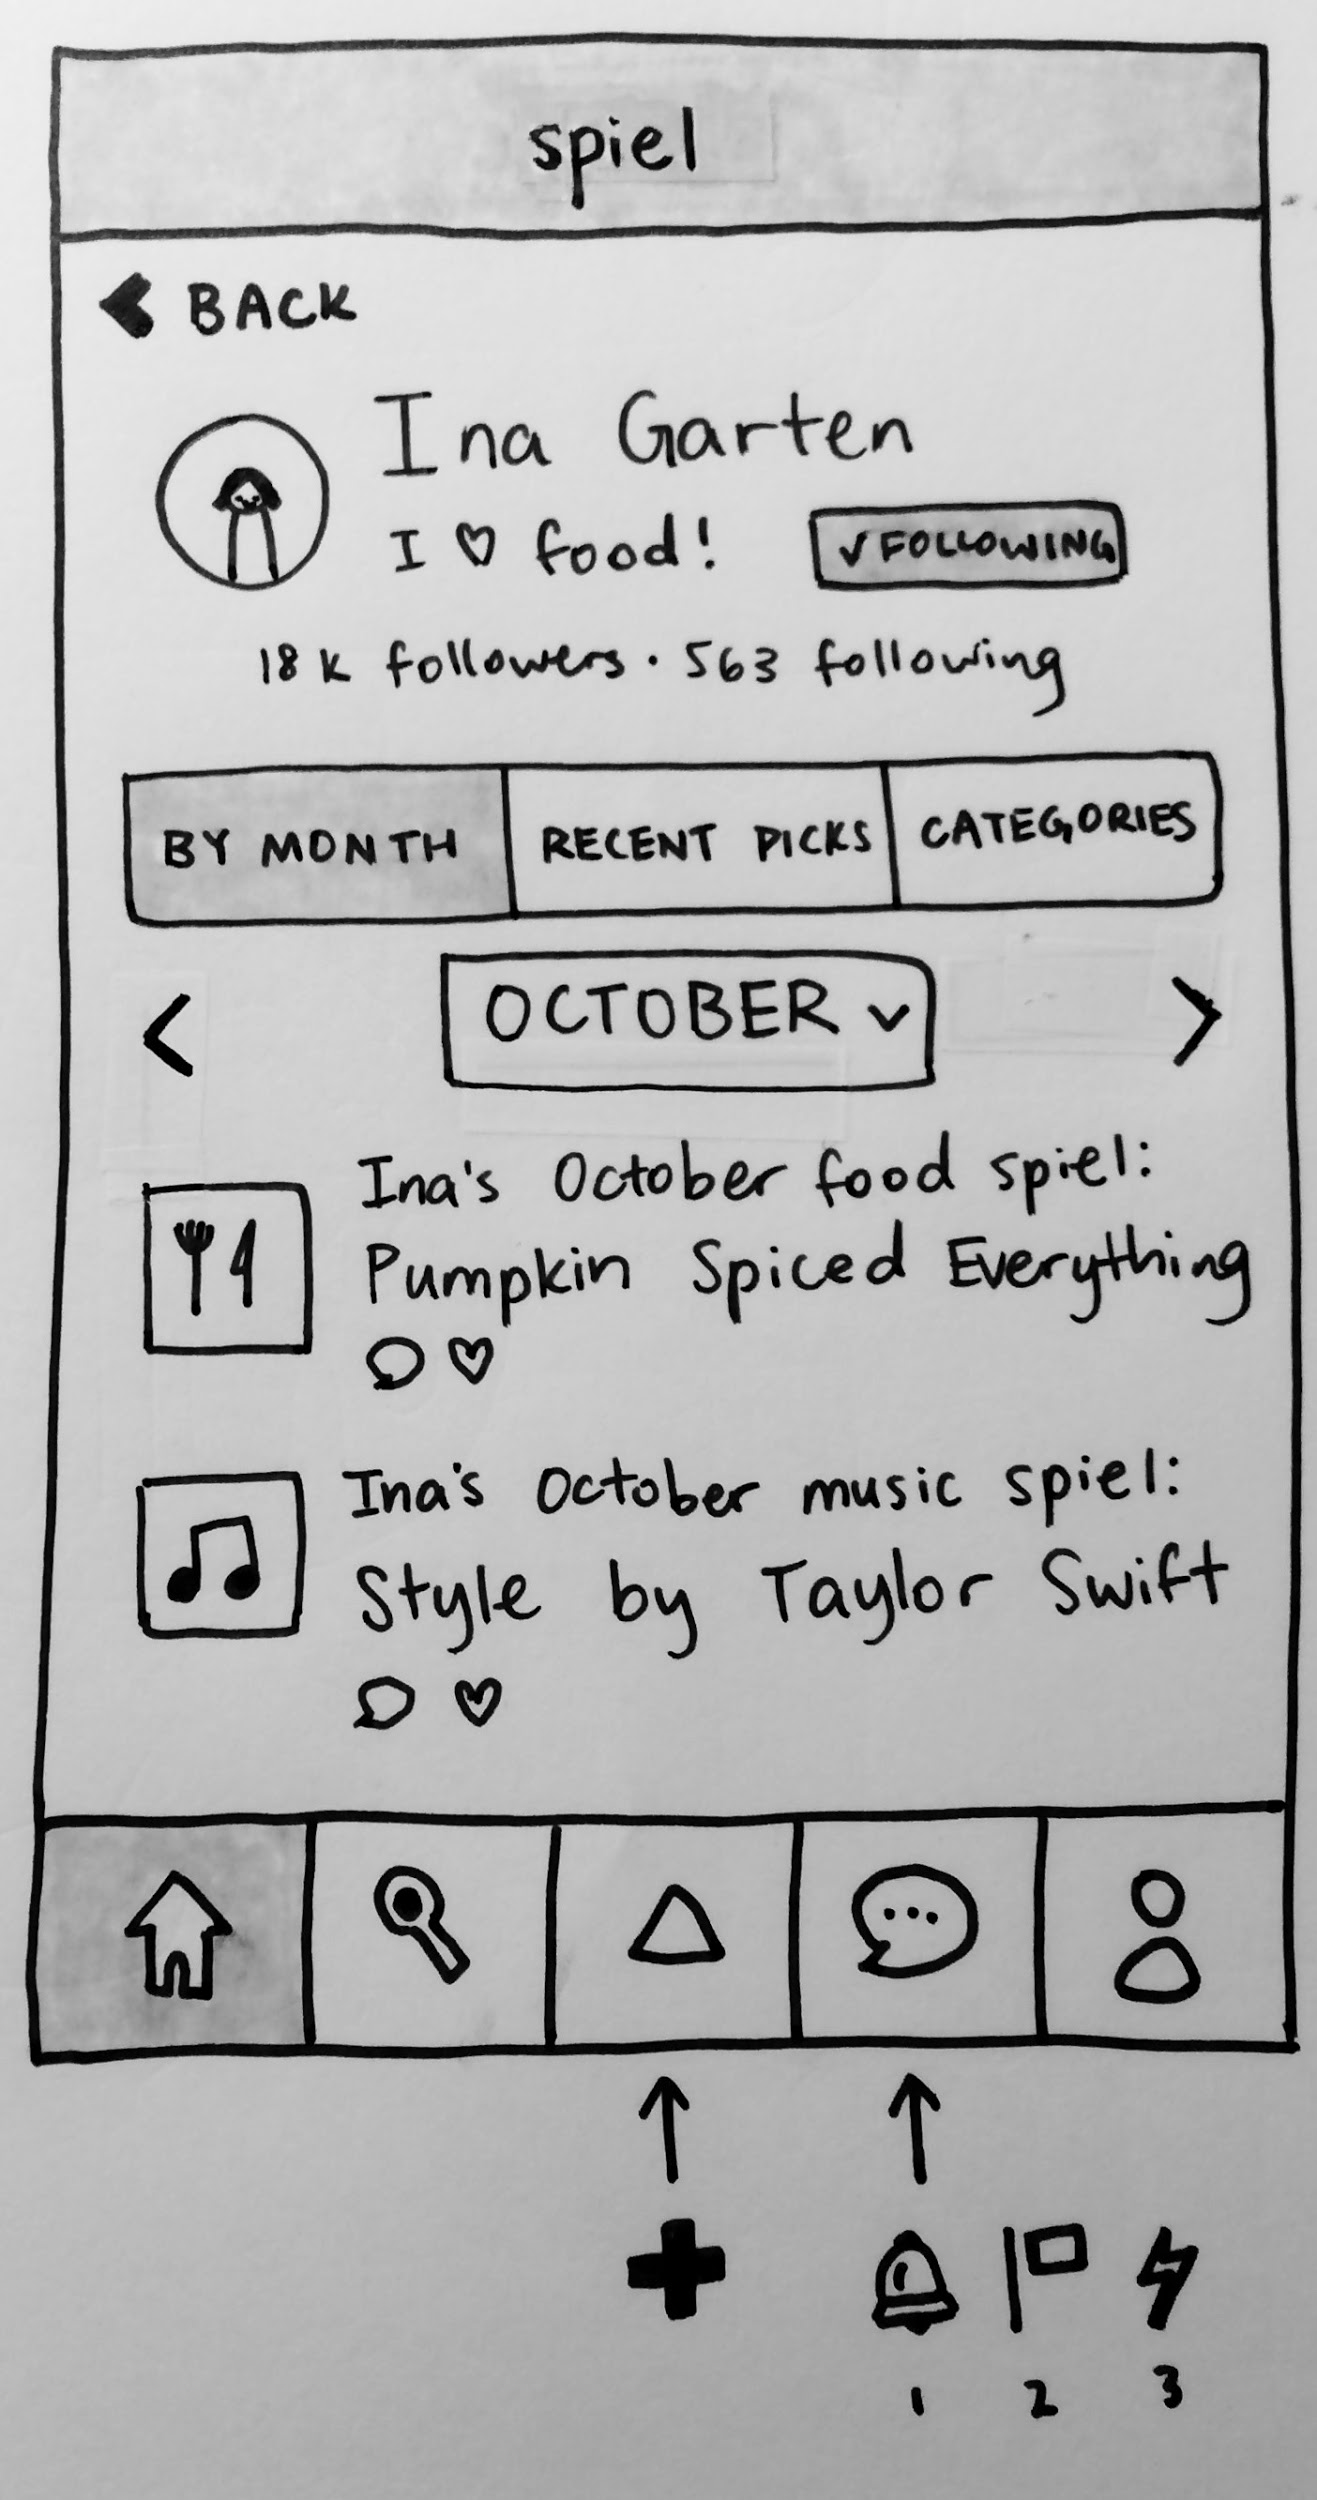 spiel
BACK
Ina Garten
I ♡ food!
✓FOLLOWING
18K followers · 563 following
BY MONTH
RECENT PICKS
CATEGORIES
OCTOBER
Ina's October food spiel:
Pumpkin Spiced Everything
Ina's October music spiel:
Style by Taylor Swift
1 2 3